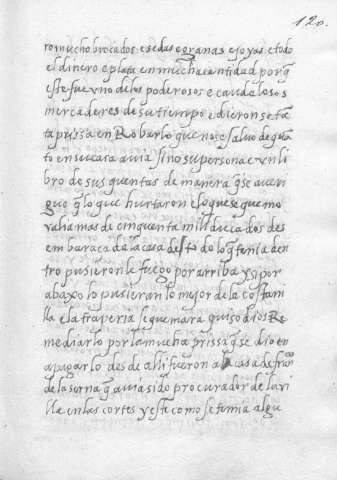 120.
ro mucho brocados e sedas e granas e joyas e todo
el dinero e plata en mucha cantidad porq̃
este fue vno de los poderosos e caudalosos
mercaderes de su tiempo e dieronse tã
ta prissa en Robarlo que no se saluo de quã
to en su casa auia sino su persona e vn li
bro de sus quentas de manera q̃ se aueri
guo q̃ lo que hurtaron e lo que se quemo
valia mas de cinquenta mill ducados des
embaraçada la casa desto de lo q̃ tenia den
tro pusieronle fuego por arriba y si por
abaxo lo pusieran lo mejor de la costani
lla e la fraperia se quemara quiso dios Re
mediarlo por la mucha prissa q̃ se dio en
apagarlo desde alli fueron a casa de frãco
de la serna q̃ auia sido procurador de la vi
lla en las cortes y este como se temia algu